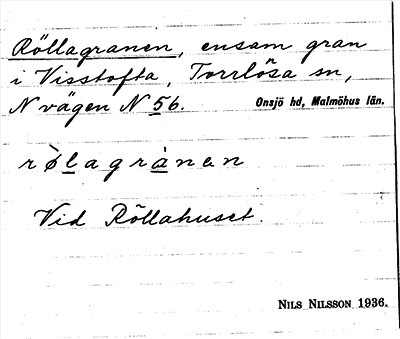 Röllagranen, ensam gran
i Visstofta, Torrlösa sn,
N vägen N 56. Onsjö hd, Malmöhus län.
rølagrànen
Vid Röllahuset.
NILS NILSSON 1936.